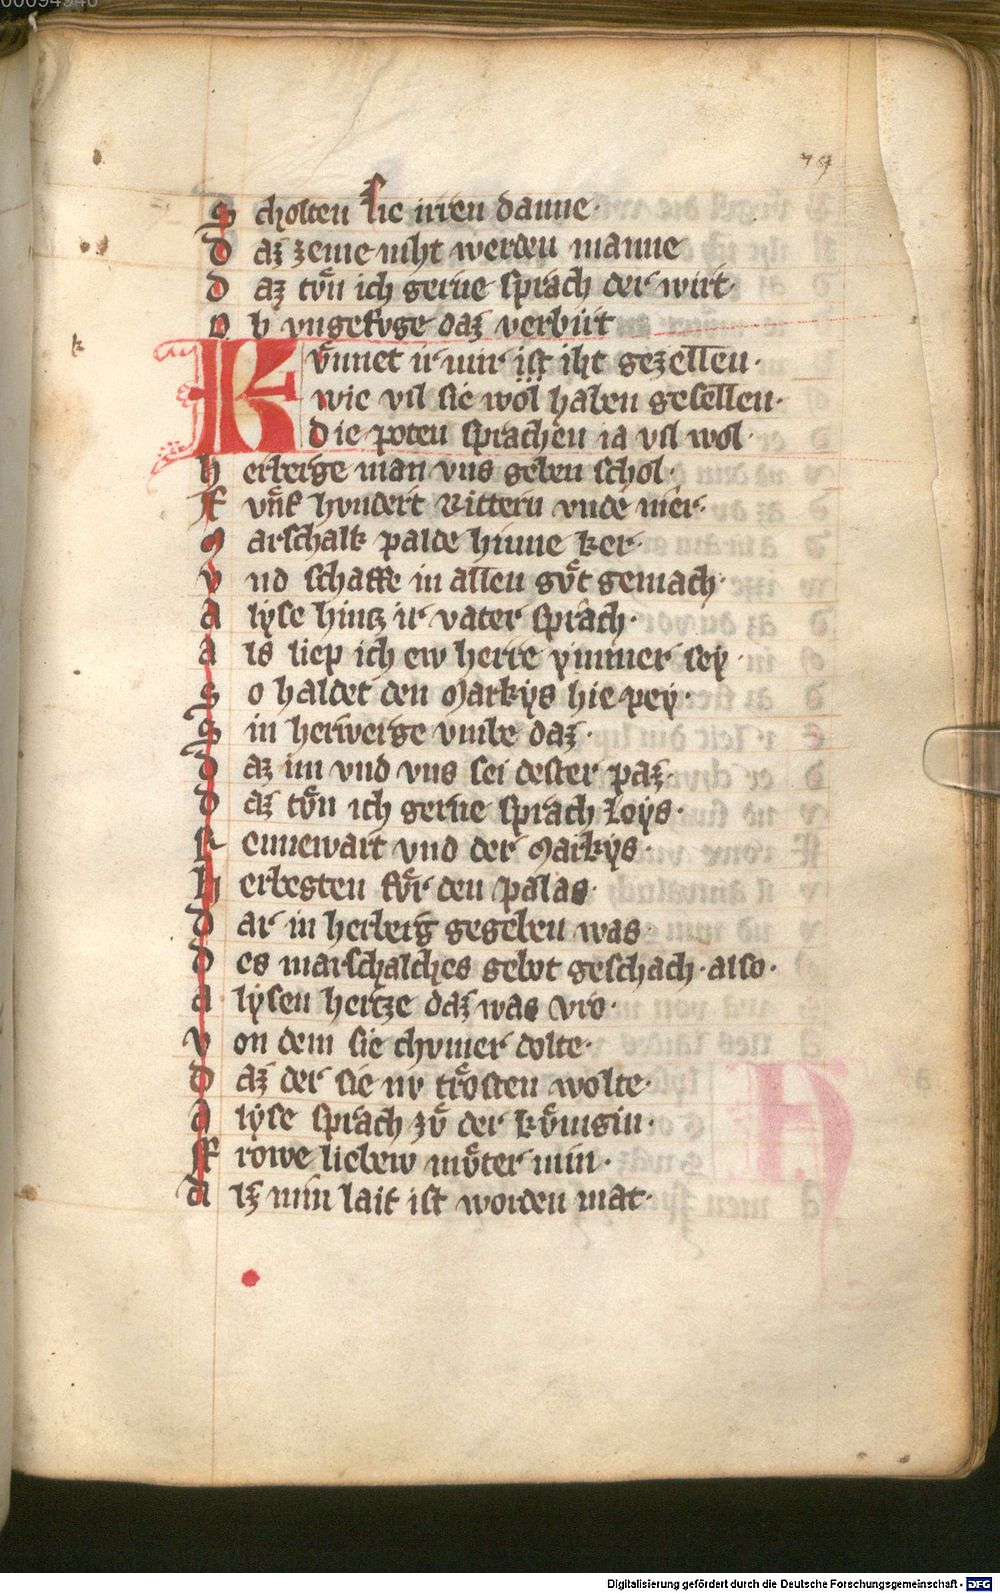 00094940
79
S cholten sie irren danne·
D az zeme niht werden manne
D az tvͦn ich gerne sprach der wirt·
O b vngefvge daz verbirt
Kvͤnnet ir mir ist iht gezellen·
wie vil sie wol haben gesellen·
Die poten sprachen ia vil wol·
H erberge man vns geben schol·
F vͤnf hvndert Rittern vnde mer·
M arschalk palde hinne ker·
V nd schaffe in allen gvͦt gemach·
A lyse hintz ir vater sprach·
A ls liep ich ew herre ymmer sey·
S o haldet den Markys hie pey·
S in herwerge vmbe daz·
D az im vnd vns sei dester paz·
D az tvͦn ich gerne sprach Loys·
R ennewart vnd der Markys·
H erbesten fvͤr den palas·
D ar in herberg gegeben was·
D es marschalches gebot geschach·also·
A lysen hertze daz was vro·
V on dem sie chvmer dolte·
D az der sie nv trͦsten wolte·
A lyse sprach zvͦ der kvͤnigin·
F rowe liebew mvͦter min·
A lz min lait ist worden mat·
Digitalisierung gefördert durch die Deutsche Forschungsgemeinschaft - DFG